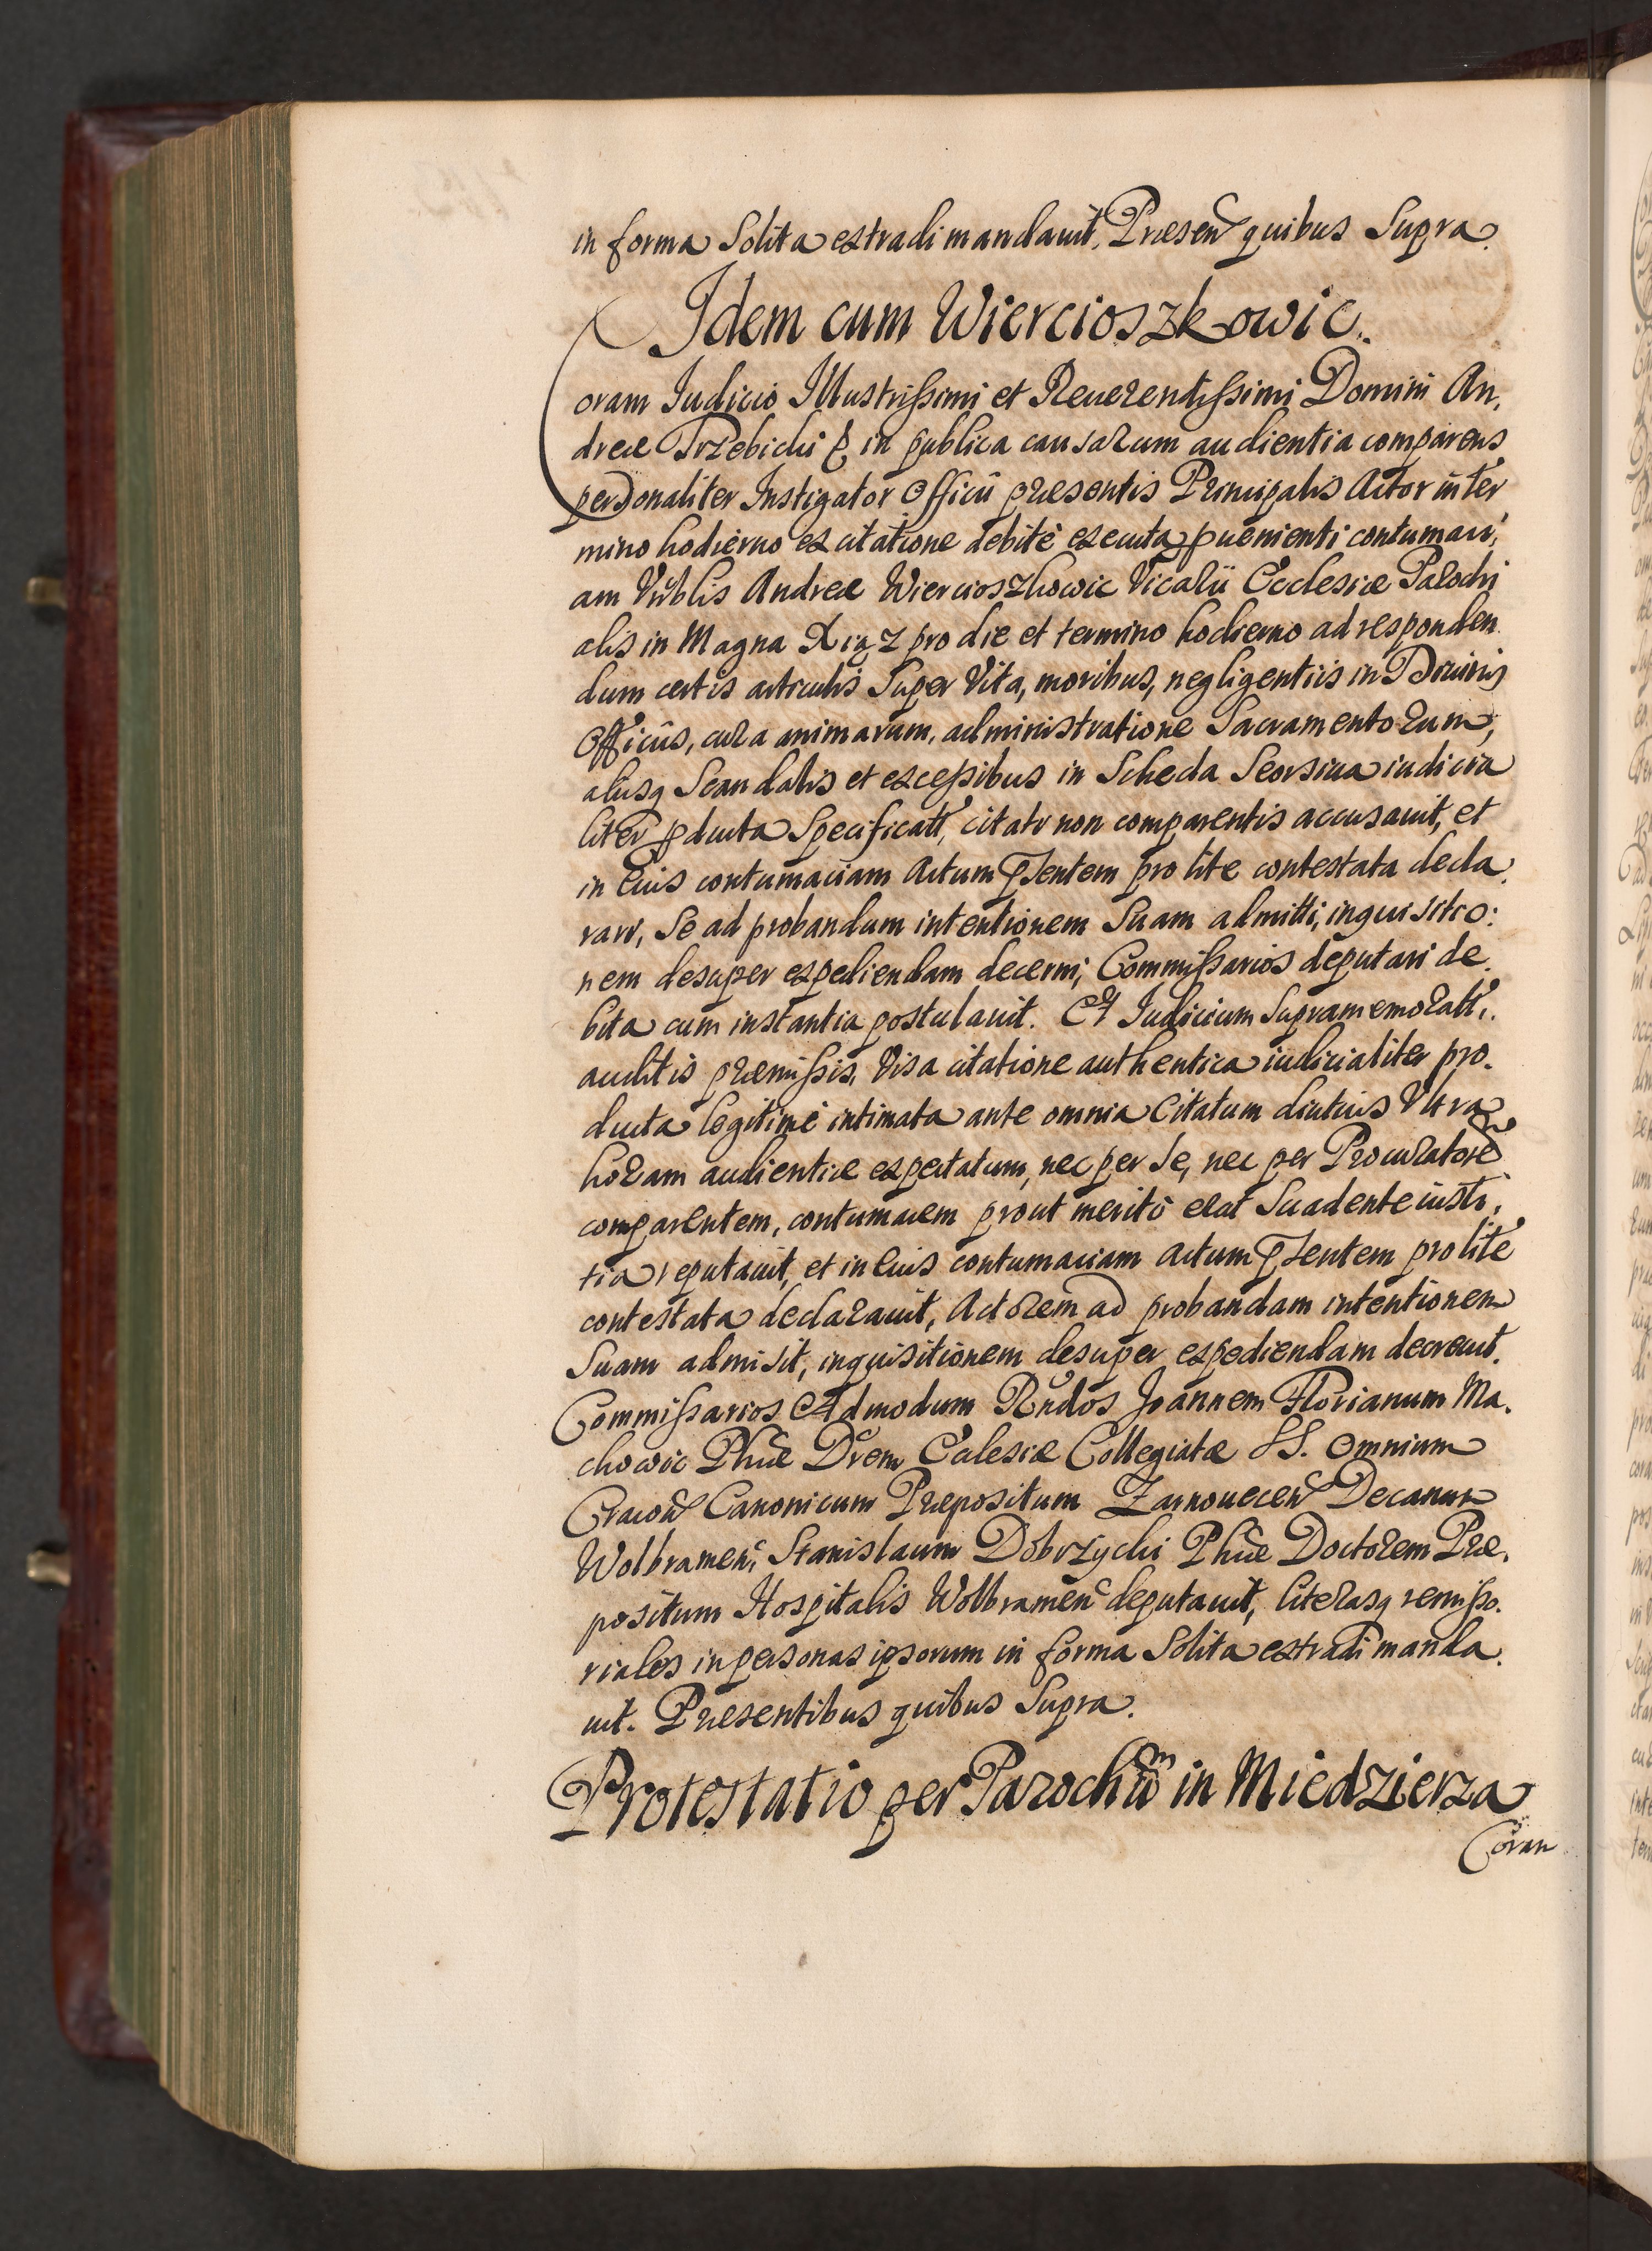 in forma Solita extradi mandauit. Præsen̄ quibus Supra.
Idem cum Wiercioszkowic.
Coram Iudicio Illustrissimi et Reuerendissimi Domini An,
dreæ Trzebicki in publica causarum audientia comparens
personaliter Instigator Officii præsentis Principalis Actor in ter
mino hodierno ex citatione debitè executa puenienti contumaci,
am Vrblis Andreæ Wiercioszkowic Vicarii Ecclesiæ Parochi
alis in Magna Xiąz pro die et termino hodierno ad responden
dum certis articulis Super Vita, moribus, negligentiis in Diuinis
Officiis, cura animarum, administratione Sacramentorum,
aliisq Scandalis et excessibus in Scheda Seorsiua iudicia
liter pducta Specificatt, citati non comparentis accusauit, et
in Eius contumaciam Actum pSentem pro lite contestata decla,
rari, Se ad probandum intentionem Suam admitti, inquisitio:
nem desuper expediendam decerni, Commissarios deputari de,
bita cum instantia postulauit. Et Iudicium Supramemoratt,.
auditis præmissis, Visa citatione authentica iudicialiter pro.
ducta legitimè intimata ante omnia Citatum diutius Vltra
horam audientiæ expectatum, nec per Se, nec per Procuratorē
comparentem, contumacem prout meritò erat Suadente iusti,
tia reputauit, et in Eius contumaciam Actum pSentem pro lite
contestata declarauit, Actorem ad probandam intentionem
Suam admisit, inquisitionem desuper expediendam decreuit.
Commissarios Admodum Rn̄dos Joannem Florianum Ma.
chowic Phiæ Drem Ecclesiæ Collegiatæ SS. Omnium
Cracou̅ Canonicum Præpositum Zarnouecen̄ Decanum
Wolbramen̄, Stanislaum Dobrzycki Phiæ Doctorem Præ.
positum Hospitalis Wolbramen̄ deputauit, literasq remisso.
riales in personas ipsorum in forma Solita extradi manda.
uit. Præsentibus quibus Supra.
Protestatio per Parochū in Miedzierza
Coram